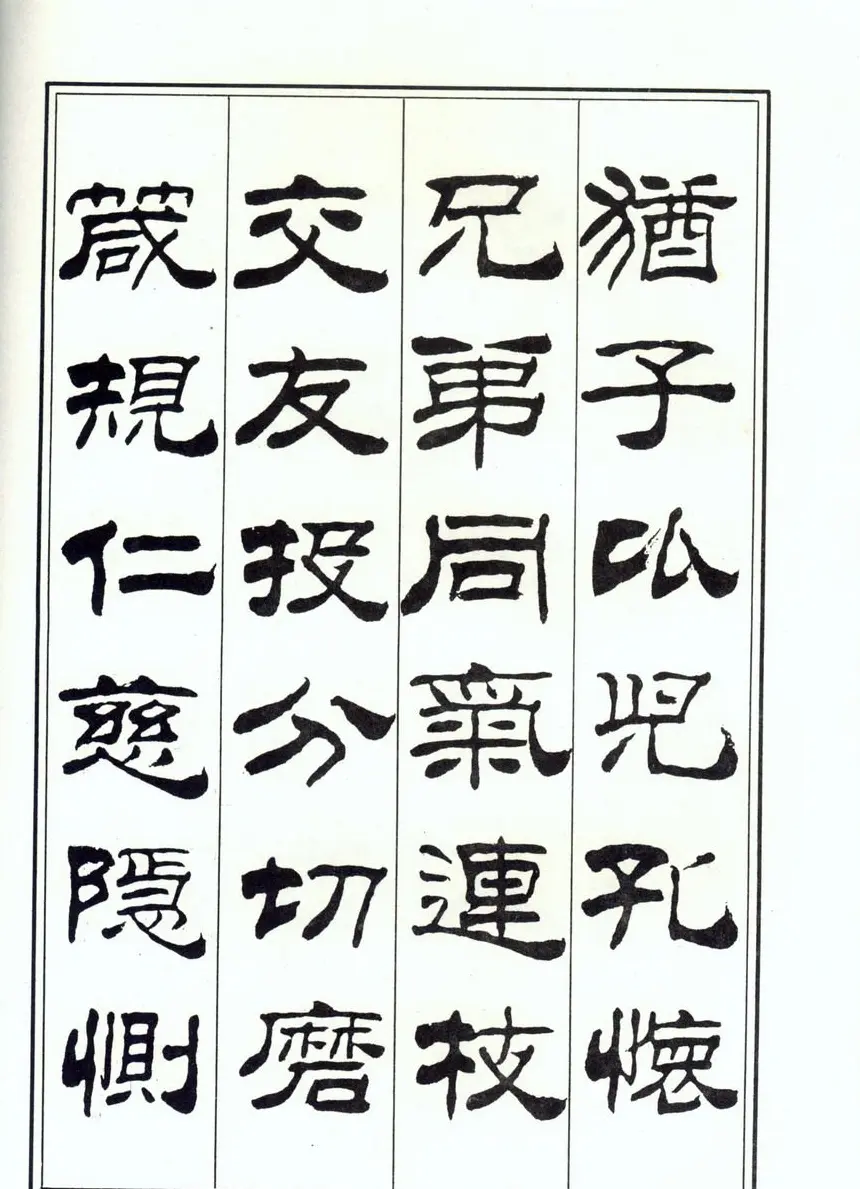 猶子以兒孔懷
兄弟同氣連枝
交友投分切磨
箴規仁慈隱惻